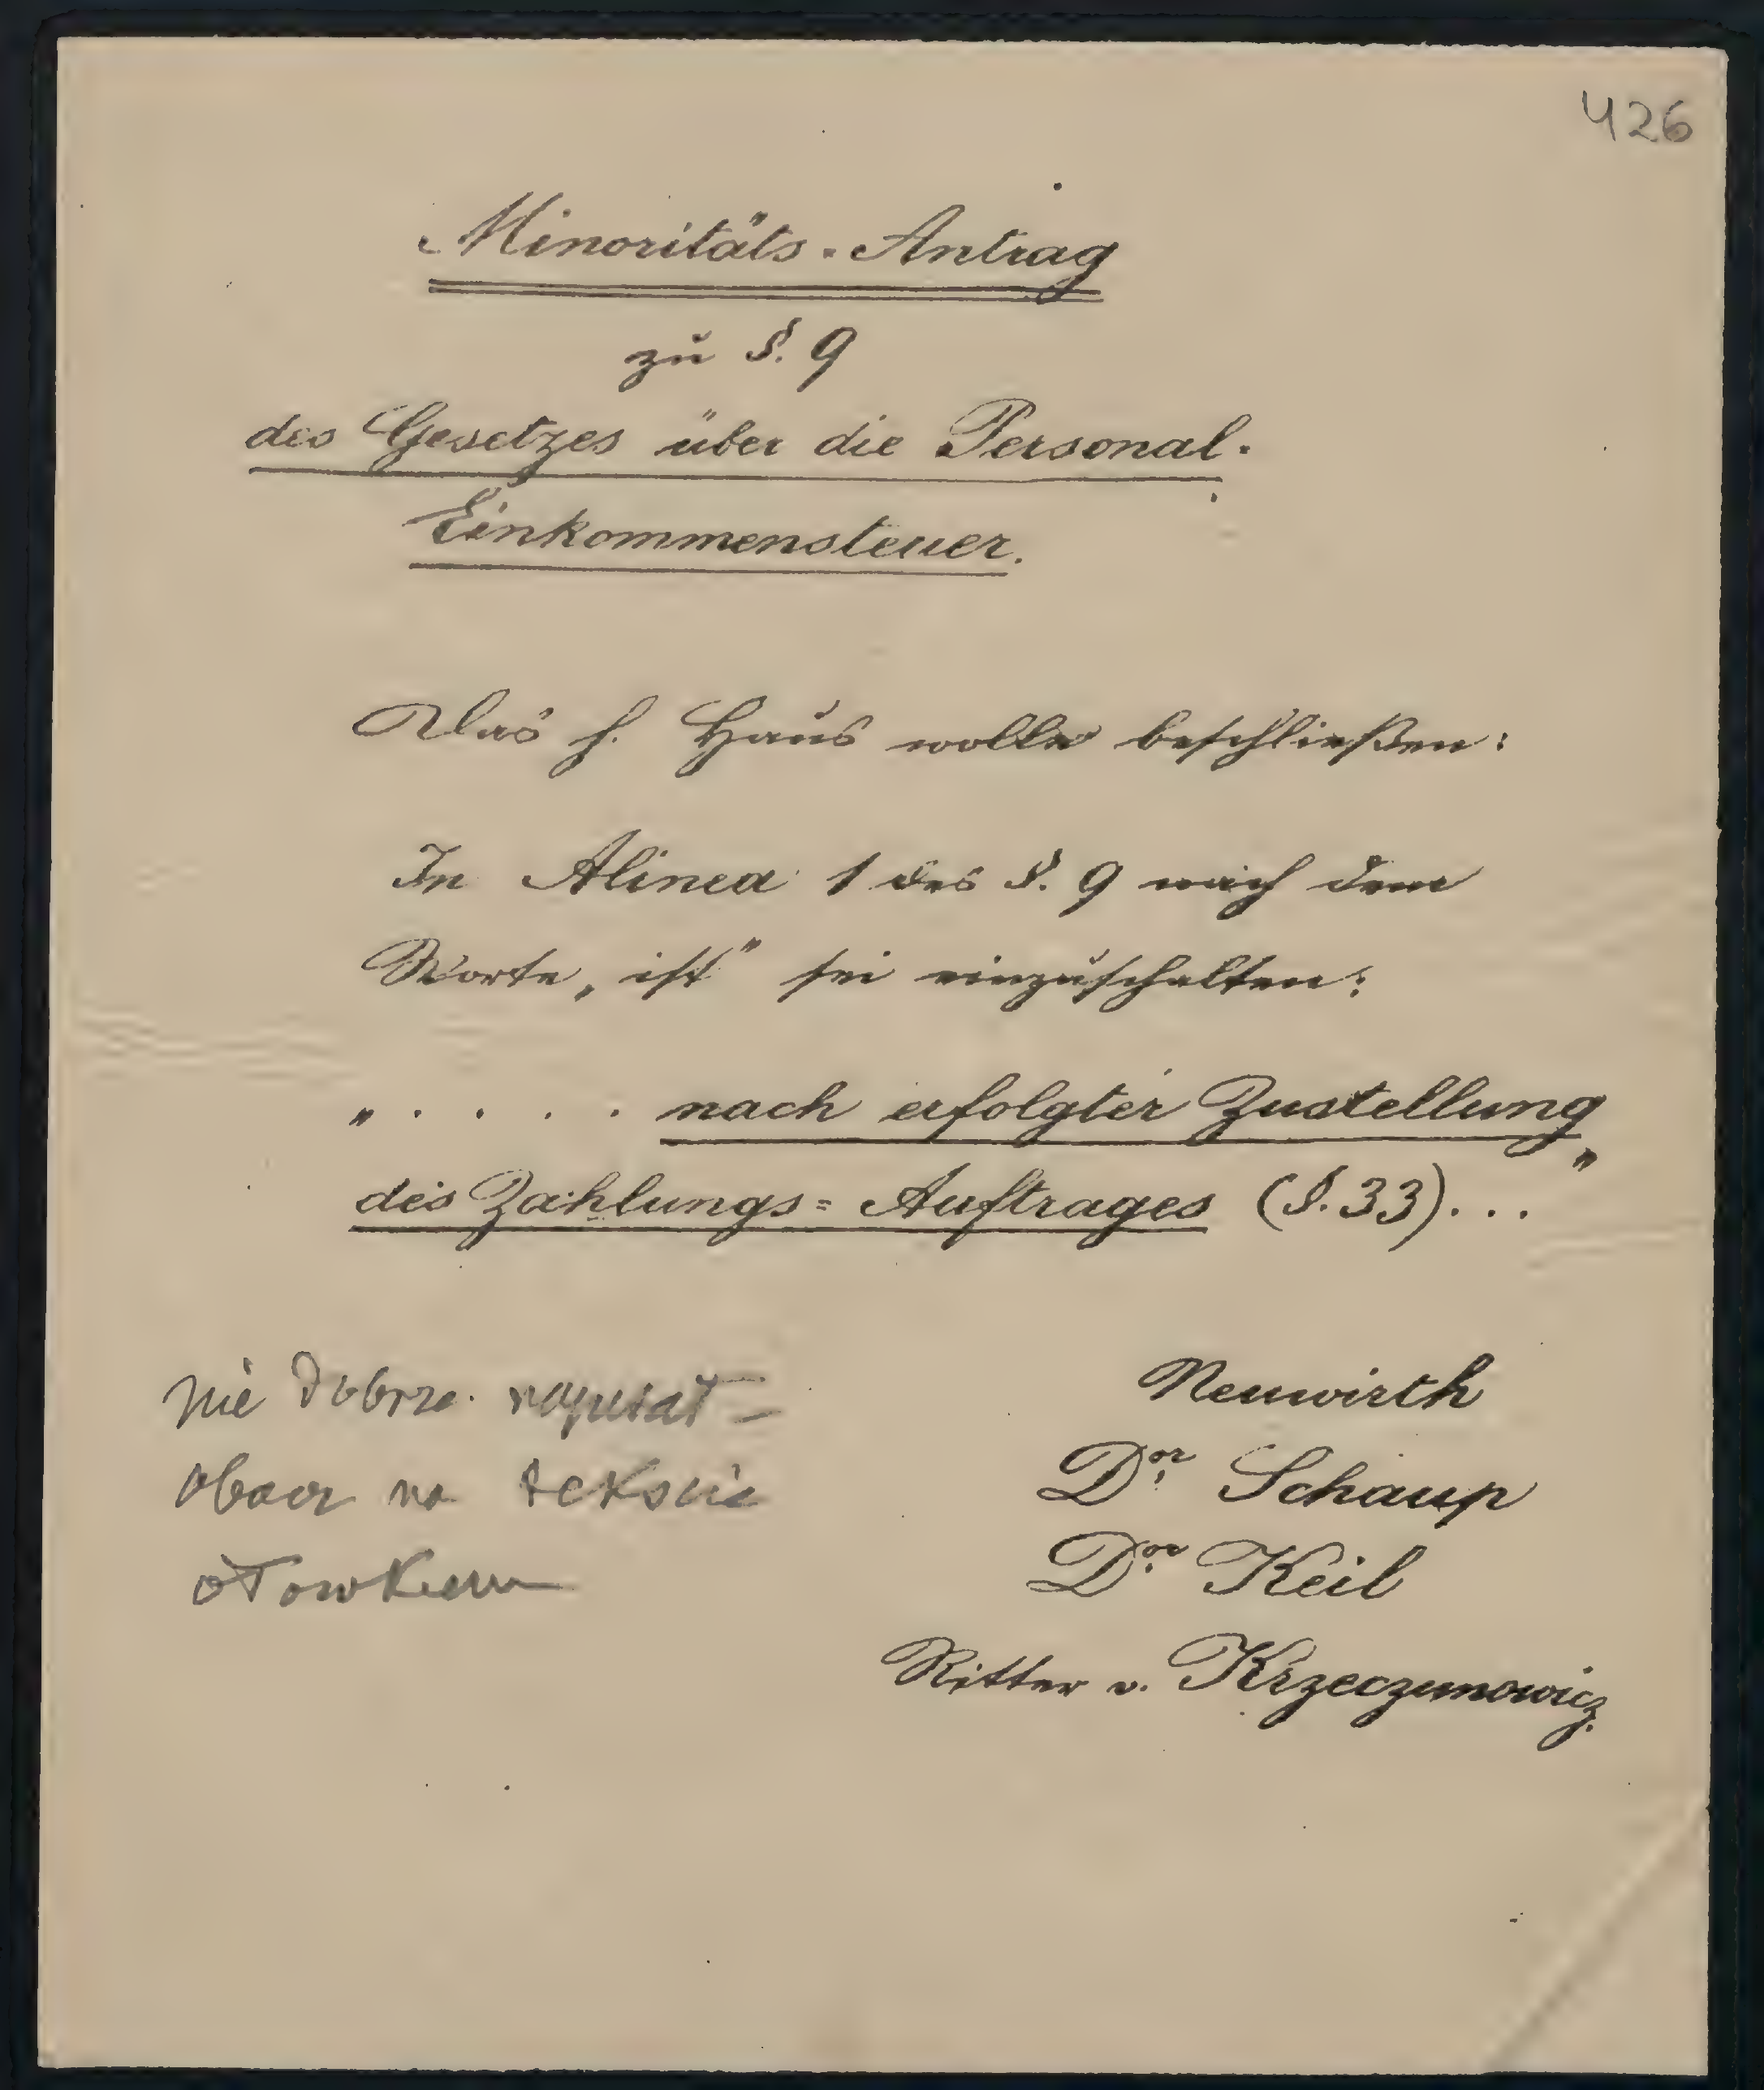 426
Minoritäts-Antrag
zu §. 9
des Gesetzes über die Personal-
Einkommensteuer.
Das h. Haus wolle beschließen:
In Alinea 1 des §. 9 nach dem
Worte „ist" sei einzuschalten:
„ . . . . nach erfolgter Zustellung
des Zahlungs=Auftrages (§. 33). . . "
Nie dobrze napisał –
obacz na tekście
ołowkiem
Neuwirth
Dor. Schaup
Dor. Keil
Ritter v. Krzeczunowicz.